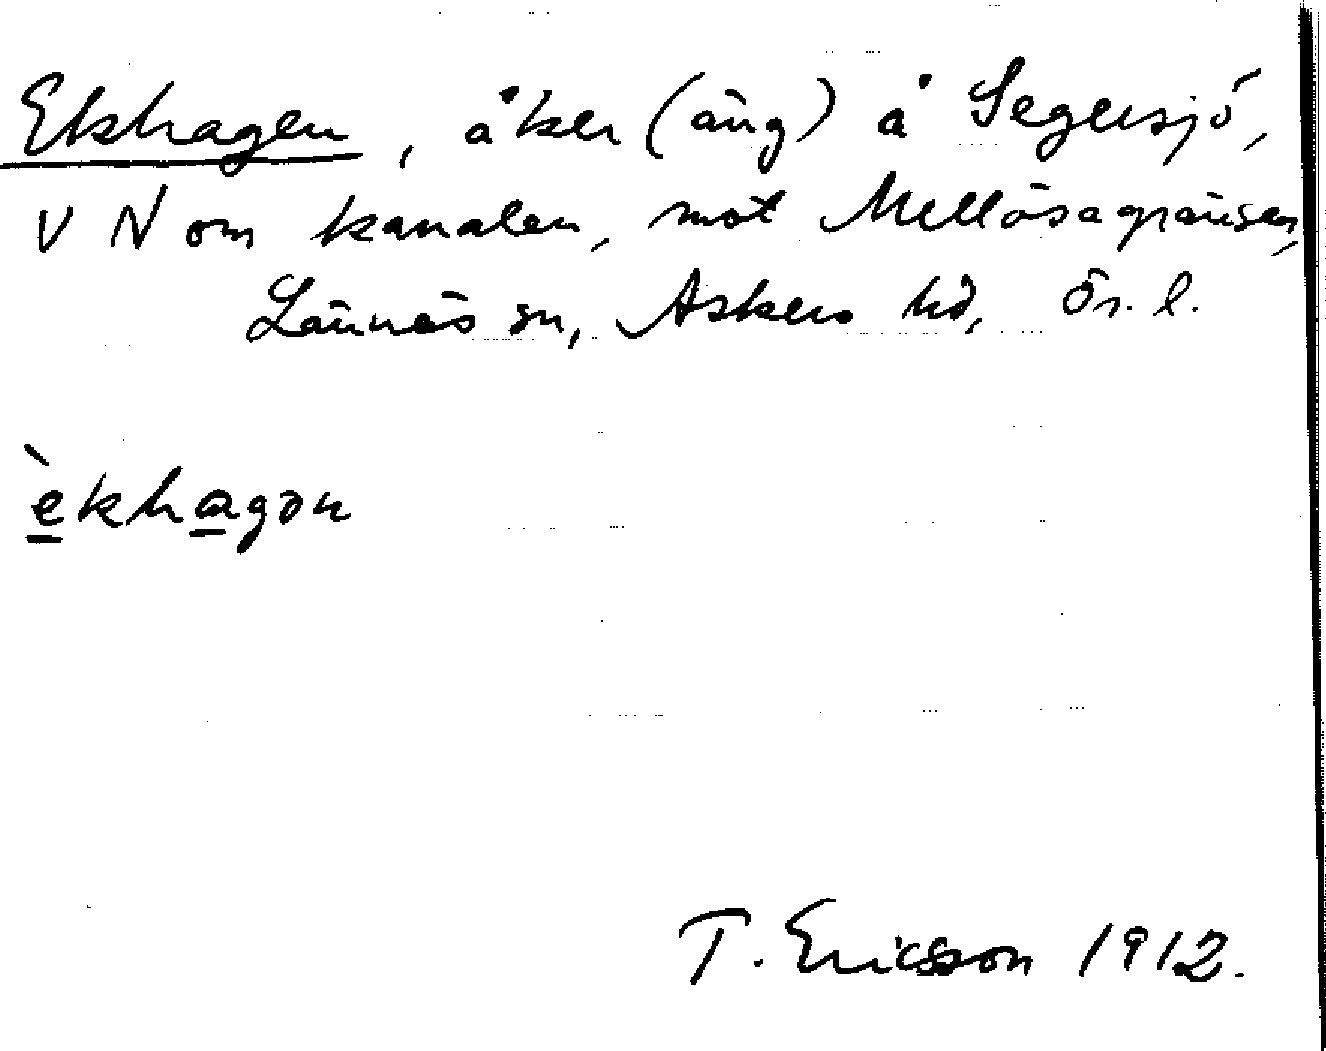 Ekhagen, åker (äng) å Segersjö,
V N om kanalen, mot Mellösagränsen,
Lännäs sn, Askers hd, Ör. l.
èkhagən
T. Ericsson 1912.